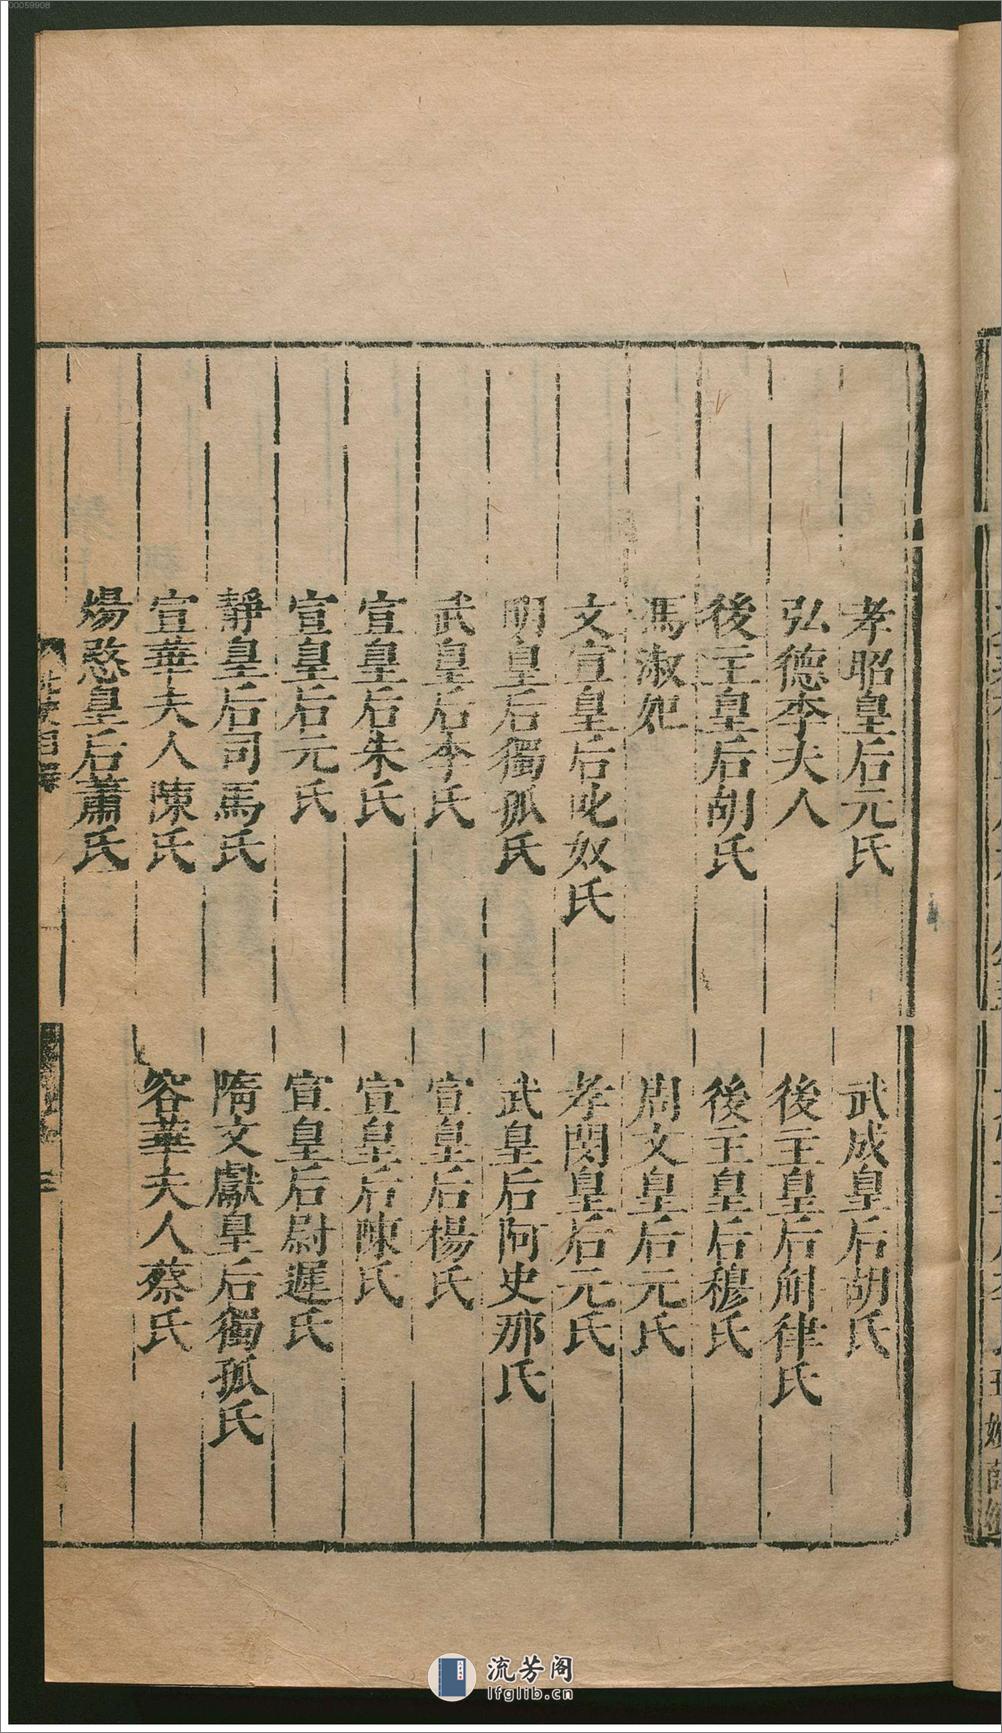 孝昭皇后元氏　武成皇后胡氏
弘德李夫人　後主皇后斛律氏
後主皇后胡氏　後主皇后穆氏
馮淑妃　周文皇后元氏
文宣皇后叱奴氏　孝閔皇后元氏
明皇后獨孤氏　武皇后阿史那氏
武皇后李氏　宣皇后楊氏
宣皇后朱氏　宣皇后陳氏
宣皇后元氏　宣皇后尉遲氏
靜皇后司馬氏　隋文獻皇后獨孤氏
宣華夫人陳氏　容華夫人蔡氏
煬愍皇后蕭氏
00059908
流芳阁
lfglib.cn